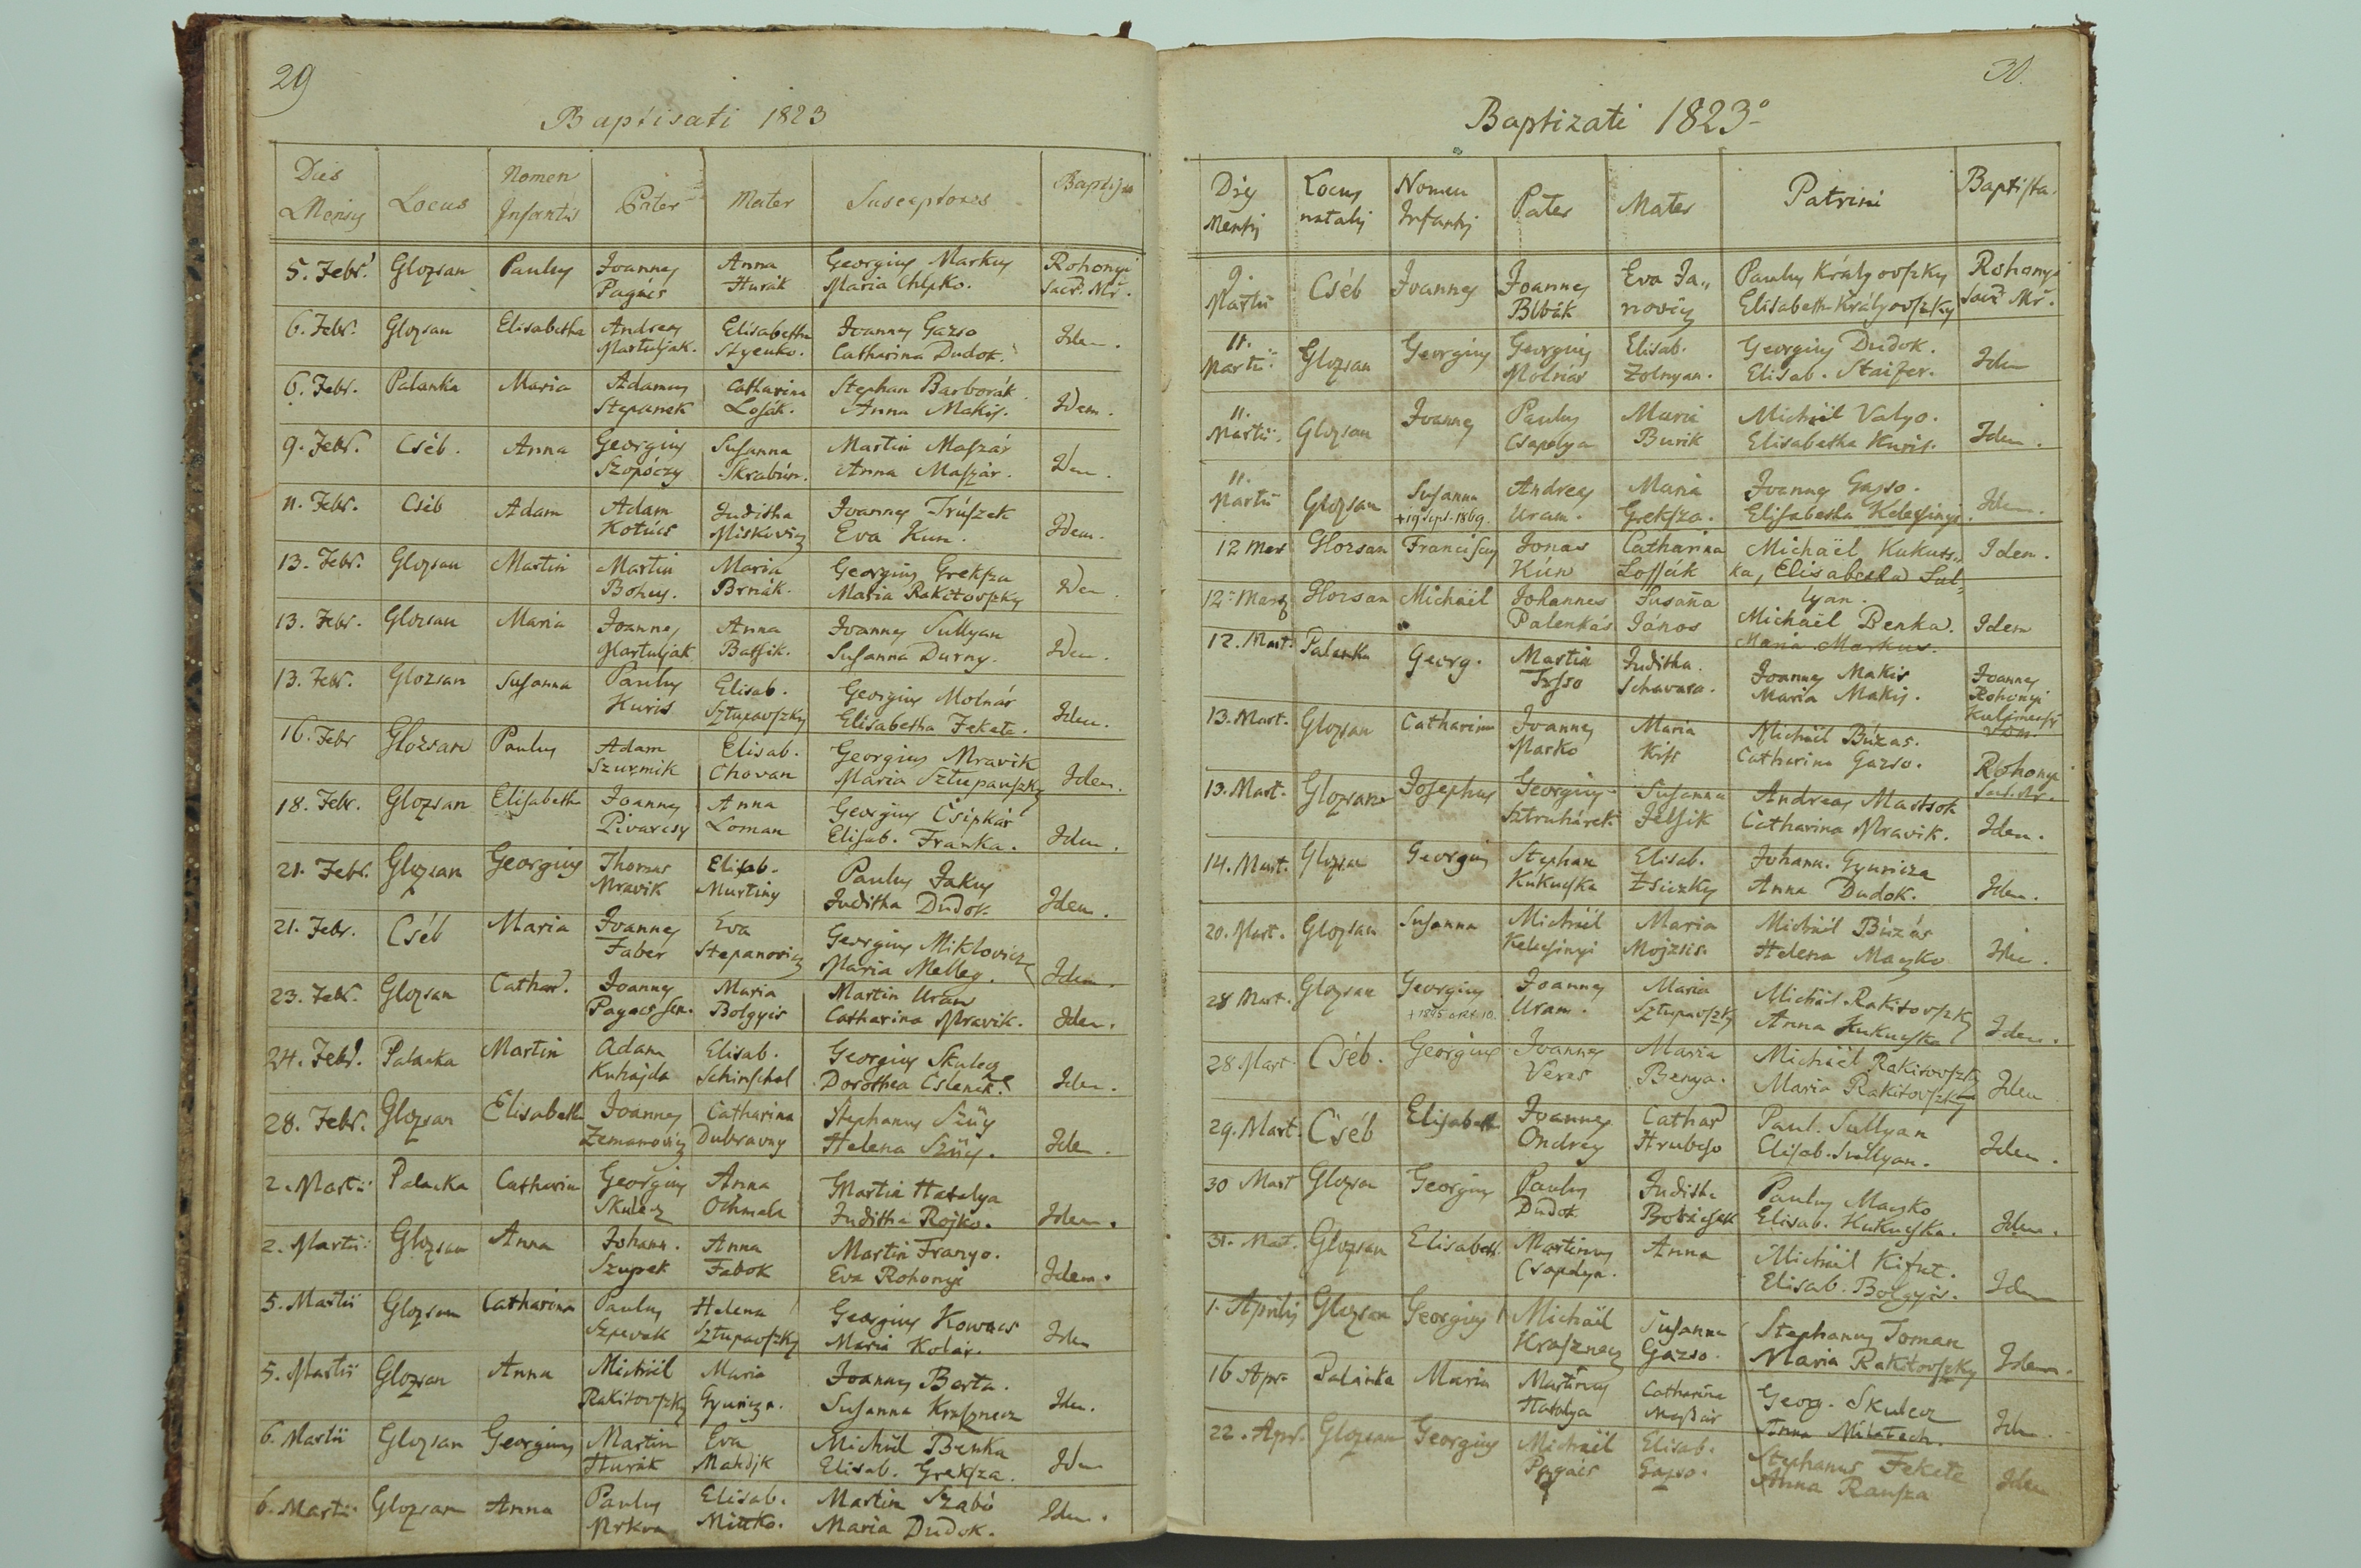 29
Baptisati 1823
Dies Mensis Locus Nomen Infantis Pater Mater Susceptores Baptista
5. Febr. Glozsan Paulus Joannes Pagács Anna Hurák Georgius Markus Maria Chlpko. Rohonyi Sacr. Mr.
6. Febr. Glozsan Elisabetha Andreas Martuljak. Elisabetha Styenko. Joannes Gazso Catharina Dudok. Idem.
6. Febr. Palanka Maria Adamus Stepanek Catharina Losák. Stephan Barborák Anna Makis. Idem.
9. Febr. Cséb. Anna Georgius Szopóczy Susanna Skrabún. Martin Maszár Anna Maszár. Idem.
11. Febr. Cséb Adam Adam Kotács Juditha Miskovicz Joannes Trúszek Eva Kun. Idem.
13. Febr. Glozsan Martin Martin Bohus. Maria Brnák. Georgius Greksza Maria Rakitovszky Idem
13. Febr. Glozsan Maria Joannes Martuljak Anna Batsik. Joannes Sullyan Susanna Durny. Idem.
13. Febr. Glozsan Susanna Paulus Kuris Elisab. Sztupavszky Georgius Molnár Elisabetha Fekete. Idem.
16. Febr Glozsan Paulus Adam Szurmik Elisab. Chovan Georgius Mravik Maria Sztupavszky Idem.
18. Febr. Glozsan Elisabeth Joannes Pivarcsy Anna Loman Georgius Csipkár Elisab. Franka. Idem.
21. Febr. Glozsan Georgius Thomas Mravik Elisab. Martiny Paulus Jakus Juditha Dudok Idem.
21. Febr. Cséb Maria Joannes Faber Eva Stepanovicz Georgius Miklovicz Maria Melleg. Idem.
23. Febr. Glozsan Cathar. Joannes Pagács sen. Maria Bolgyis Martin Uram Catharina Mravik. Idem.
24. Febr. Palanka Martin Adam Kuhajda Elisab. Schirschel Georgius Skulecz Dorothea Cslenek. Idem.
28. Febr. Glozsan Elisabeth Joannes Zemanovicz Catharina Dubravny Stephanus Szüz Helena Szüz. Idem.
2. Martii Palanka Catharin Georgius Skulecz Anna Ochmela Martin Hatalya Juditha Rojko. Idem.
2. Martii Glozsan Anna Johann. Szupek Anna Fabok Martin Franyo. Eva Rohonyi Idem.
5. Martii Glozsan Catharina Paulus Szpevak Helena Sztupavszky Georgius Kovács Maria Kolár. Idem
5. Martii Glozsan Anna Michäel Rakitovszky Maria Gyuricza. Joannes Berta. Susanna Krasznecz Idem.
6. Martii Glozsan Georgius Martin Hurák Eva Makójk Michäel Benka Elisab. Greksza. Idem
6. Martii Glozsan Anna Paulus Mrkva Elisab. Mitko. Martin Szabó Maria Dudok. Idem.
30.
Baptizati 1823º
Dies Mensis Locus natalis Nomen Infantis Pater Mater Patrini Baptista.
9. Martii Cséb Joannes Joannes Blbák Eva Janovicz Paulus Krályovszky Elisabeth Krályovszky Rohonyi Sacr. Mr.
11. Martii Glozsan Georgius Georgius Molnár Elisab. Zolnyan. Georgius Dudok. Elisab. Staifer. Idem
11. Martii. Glozsan Joannes Paulus Csapelya Maria Burik Michäel Valyo. Elisabetha Kuris. Idem.
11. Martii Glozsan Susanna +19 Sept. 1869. Andreas Uram. Maria Greksza. Joannes Gazso. Elisabetha Kelecsinyi. Idem.
12 Mart Glozsan Franciscus Jonas Kún Catharina Lossák Michaël Kukutska, Elisabetha Sullyan. Idem.
12. Mart Glozsan Michaël Johannes Palenkás Susaña János Michaël Benka. Maria Markus. Idem
12. Mart. Palanka Georg. Martin Juditha. Schavara. Joannes Makis Maria Makis. Joannes Rohonyi
13. Mart. Glozsan Catharina Joannes Marko Maria Kiss Michäel Búzas. Catharina Gazso. Rohonyi Sacr. Mr.
13. Mart. Glozsan Josephus Georgius Sztruhárek Susanna Jelsik Andreas Martsok Catharina Mravik. Idem.
14. Mart. Glozsan Georgius Stephan Kukucska Elisab. Zsiczky Johann. Gyuricza Anna Dudok. Idem.
20. Mart. Glozsan Susanna Michäel Kelecsinyi Maria Mojzsis. Michäel Búzás Helena Maczko Idem.
28 Mart. Glozsan Georgius Joannes Uram. Maria Sztupavszky Michäel Rakitovszky Anna Kukucska Idem.
28. Mart. Cséb. Georgius Joannes Veres Maria Benya. Michäel Rakitovszky Maria Rakitovszky Idem
29. Mart. Cséb Elisabeth Joannes Ondrey Cathar Hrubcso Paul. Sullyan Elisab. Sullyan. Idem.
30 Mart Glozsan Georgius Paulus Dudok Juditha Paulus Maczko Elisab. Kukucska. Idem.
31. Mart. Glozsan Elisabeth. Martinus Csapelya. Anna Michäel Kisut. Elisab. Bolgyis. Idem
1. Aprilis Glozsan Georgius Michäel Krasznecz Susanna Gazso. Stephanus Toman Maria Rakitovszky Idem.
16 Apr. Palánka Maria Martinus Hatalya Catharina Maszár Georg. Skulecz Anna Milatech. Idem.
22. Apr. Glozsan Georgius Michäel Pagács Elisab. Gazso. Stephanus Fekete Anna Rausza Idem